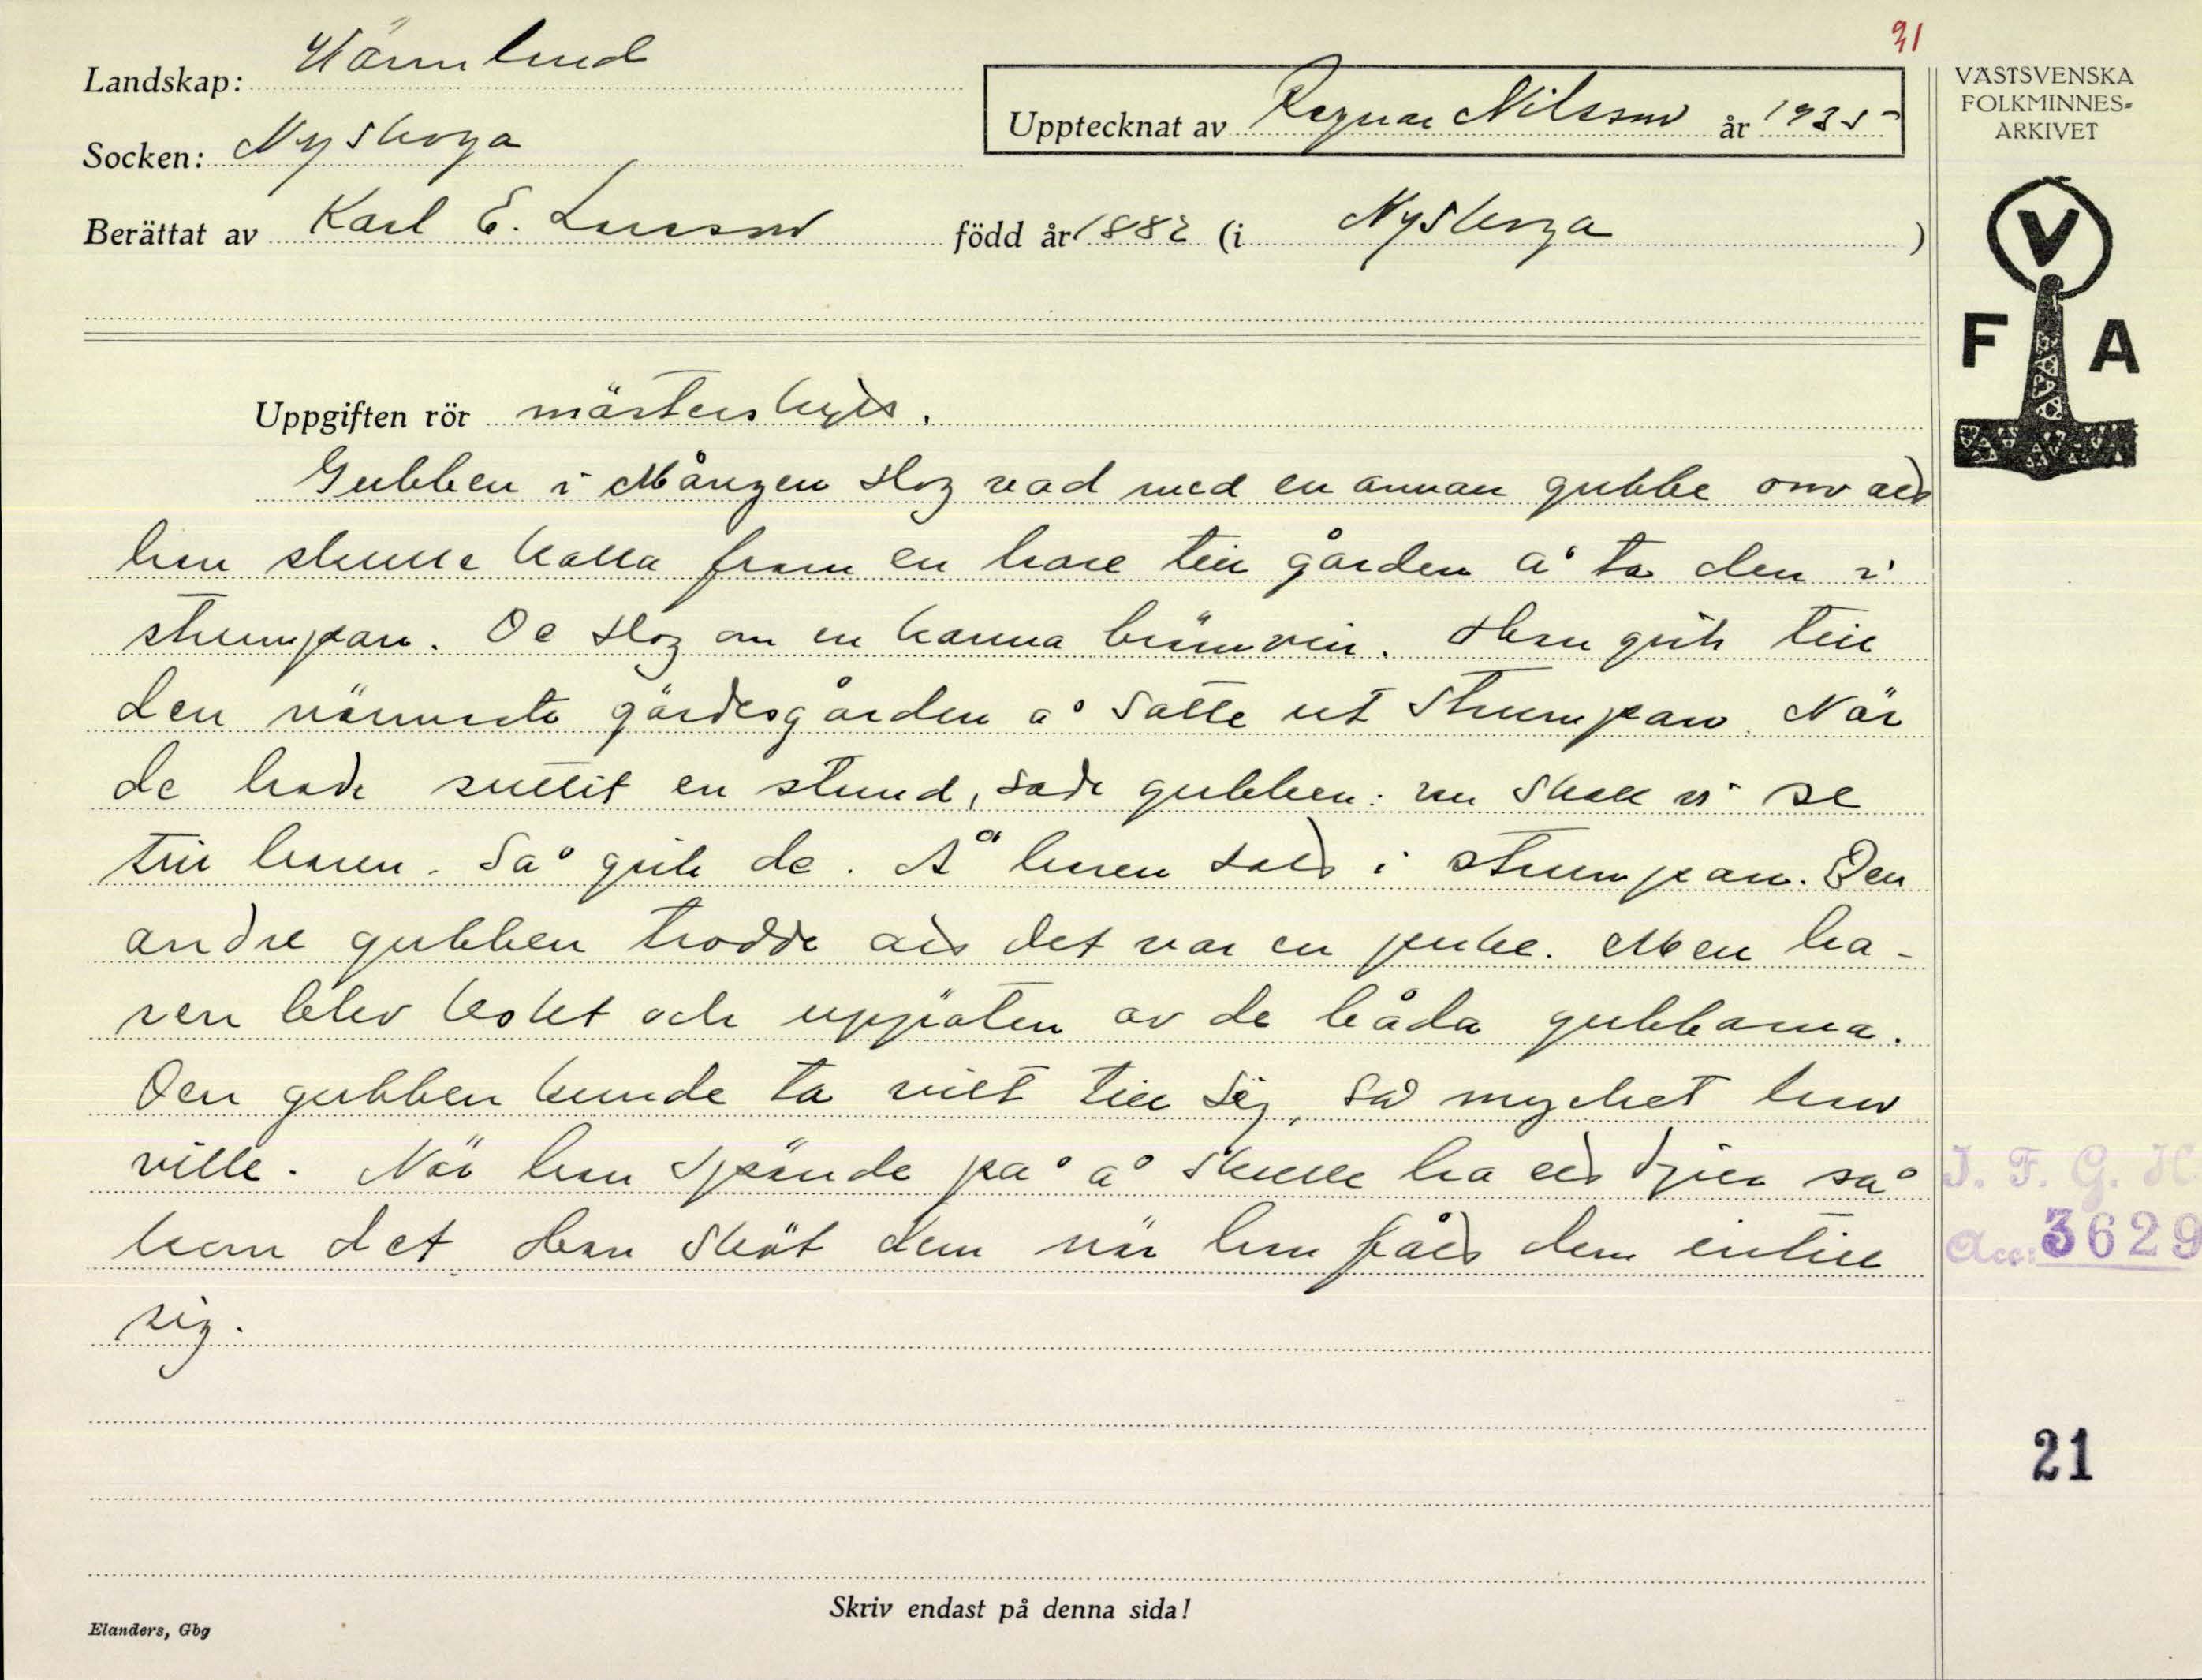 21
Landskap: Värmland
Socken: Nyskoga
Berättat av Karl E. Larsson född år 1882 (i Nyskoga)
Upptecknat av Ragnar Nilsson år 1935
VÄSTSVENSKA
FOLKMINNES-
ARKIVET
V
F A
Uppgiften rör mästerskytt.
Gubben i Mången slog vad med en annan gubbe om att
han skulle kalla fram en hare till gården å ta den i
strumpan. De slog om en kanna brännvin. Han gick till
den närmsta gärdesgården å satte ut strumpan. När
de hade suttit en stund, sade gubben: nu skall vi se
till haren. Så gick de. Å haren satt i strumpan. Den
andre gubben trodde att det var en puke. Men ha-
ren blev kokt och uppäten av de båda gubbarna.
Den gubben kunde ta vilt till sig, så mycket han
ville. När han spände på å skulle ha ett djur så
kom det. Han sköt dem när han fått dem intill
sig.
I. F. G. H.
Acc: 3629
21
Skriv endast på denna sida!
Elanders, Gbg